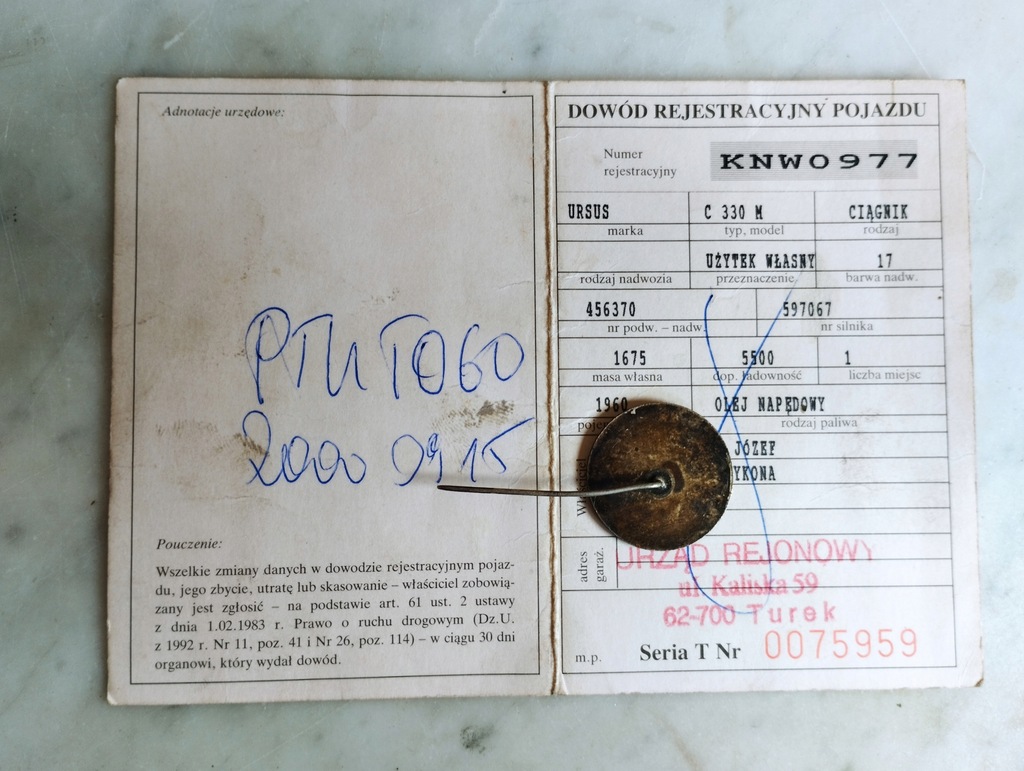 Adnotacje urzędowe:
PTU T060
2000 09 15
Pouczenie:
Wszelkie zmiany danych w dowodzie rejestracyjnym pojaz-
du, jego zbycie, utratę lub skasowanie – właściciel zobowią-
zany jest zgłosić – na podstawie art. 61 ust. 2 ustawy
z dnia 1.02.1983 r. Prawo o ruchu drogowym (Dz.U.
z 1992 r. Nr 11, poz. 41 i Nr 26, poz. 114) – w ciągu 30 dni
organowi, który wydał dowód.
DOWÓD REJESTRACYJNY POJAZDU
Numer
rejestracyjny
KNW0977
URSUS C 330 M CIĄGNIK
marka typ, model rodzaj
UŻYTEK WŁASNY 17
rodzaj nadwozia przeznaczenie barwa nadw.
456370 597067
nr podw. – nadw. nr silnika
1675 5500 1
masa własna dop. ładowność liczba miejsc
1960 OLEJ NAPĘDOWY
rodzaj paliwa
JÓZEF
YKONA
adres
garaż.
URZĄD REJONOWY
ul. Kaliska 59
62-700 Turek
m.p. Seria T Nr 0075959